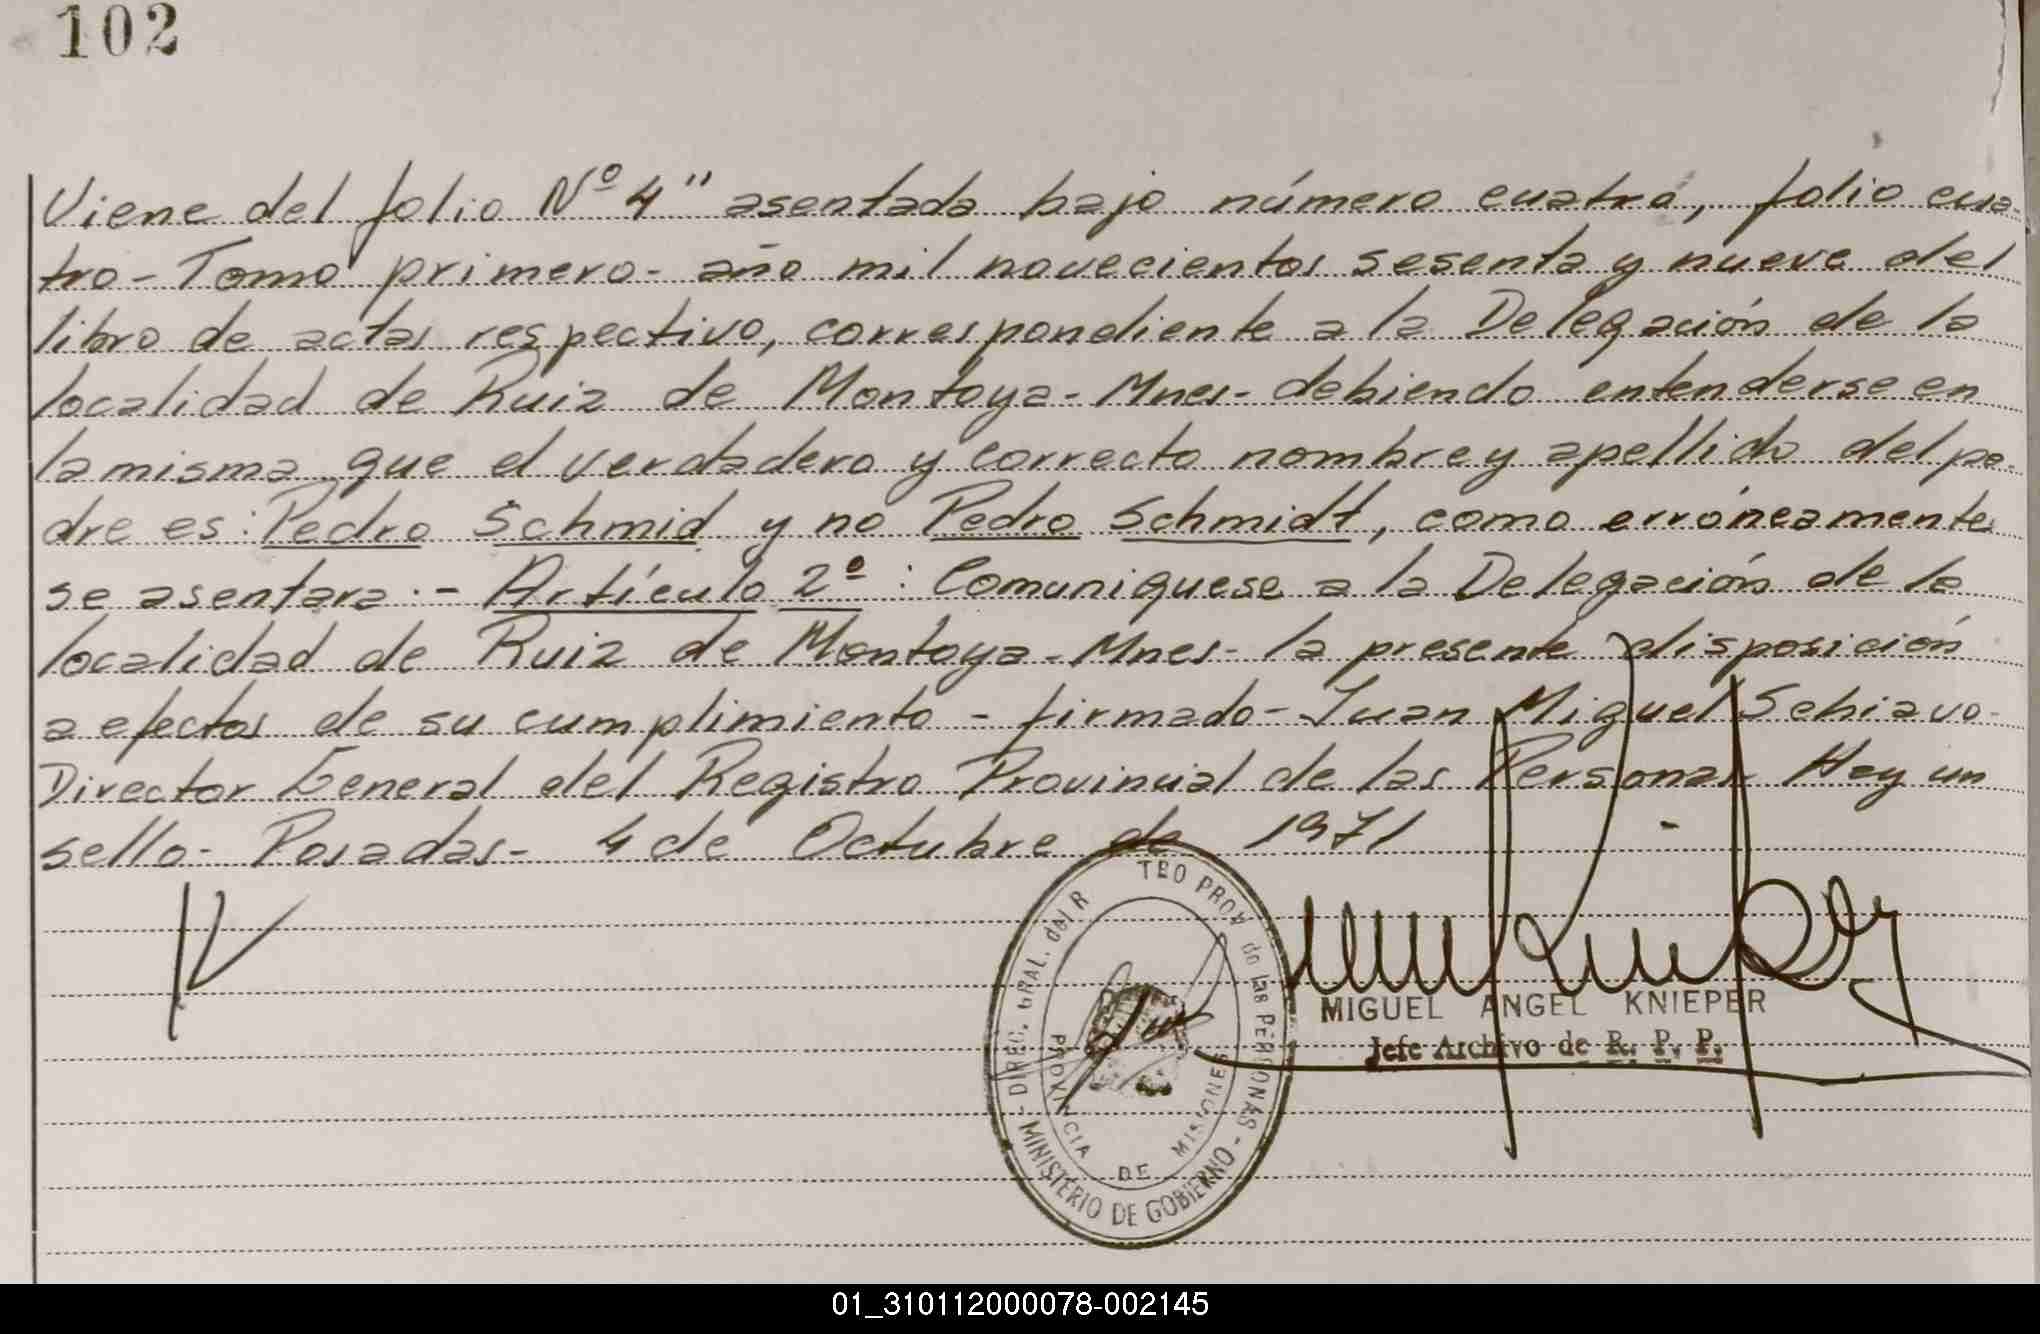 102
Viene del folio Nº 4" asentada bajo número cuatro, folio cua-
tro - Tomo primero - año mil novecientos sesenta y nueve del
libro de actas respectivo, correspondiente a la Delegación de la
localidad de Ruiz de Montoya - Mnes - debiendo entenderse en
la misma que el verdadero y correcto nombre y apellido del pa-
dre es: Pedro Schmid y no Pedro Schmidt, como erróneamente
se asentara. - Artículo 2º : Comuniquese a la Delegación de la
localidad de Ruiz de Montoya - Mnes - la presente disposición
a efectos de su cumplimiento - firmado - Juan Miguel Schiavo -
Director General del Registro Provincial de las Personas Hay un
sello - Posadas - 4 de Octubre de 1971
DIREC. GRAL. del R TRO PROV de las PERSONAS
PROVINCIA DE MISIONES
- MINISTERIO DE GOBIERNO -
MIGUEL ANGEL KNIEPER
Jefe Archivo de R. P. P.
01_310112000078-002145